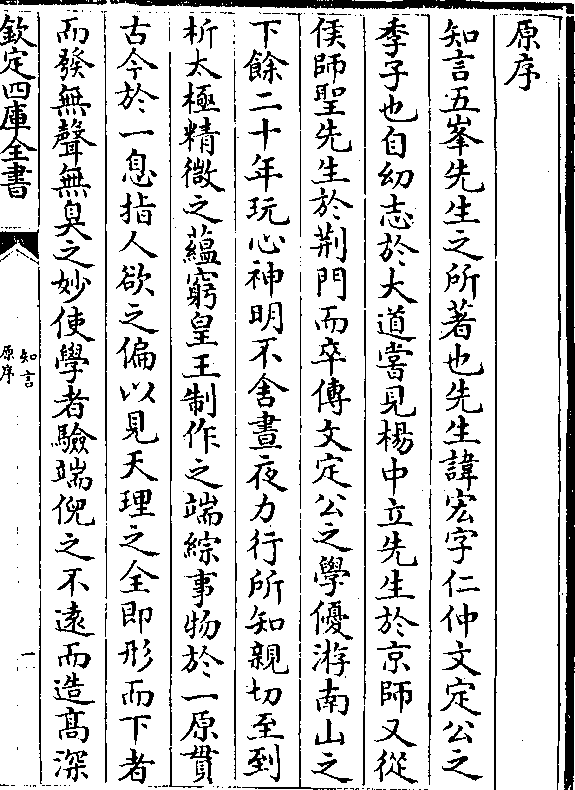 原序
知言五峯先生之所著也先生諱宏字仁仲文定公之
季子也自幼志於大道嘗見楊中立先生於京師又從
侯師聖先生於荆門而卒傳文定公之學優游南山之
下餘二十年玩心神明不舍晝夜力行所知親切至到
析太極精微之蘊窮皇王制作之端綜事物於一原貫
古今於一息指人欲之偏以見天理之全即形而下者
而發無聲無臭之妙使學者驗端倪之不遠而造髙深
欽定四庫全書
知言
原序
一